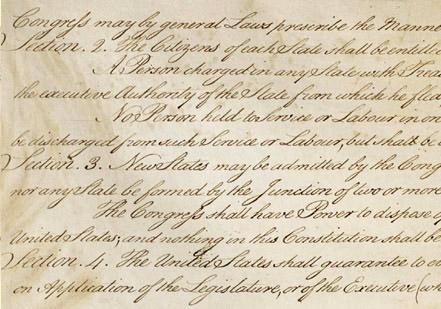 Congress may by general Laws prescribe the Manne
Section. 2. The Citizens of each State shall be entitle
A Person charged in any State with Trea
the executive Authority of the State from which he fled
No Person held to Service or Labour in on
be discharged from such Service or Labour, but shall be
Section. 3. New States may be admitted by the Cong
nor any State be formed by the Junction of two or more
The Congress shall have Power to dispose o
United States; and nothing in this Constitution shall be
Section. 4. The United States shall guarantee to
on Application of the Legislature, or of the Executive (wh